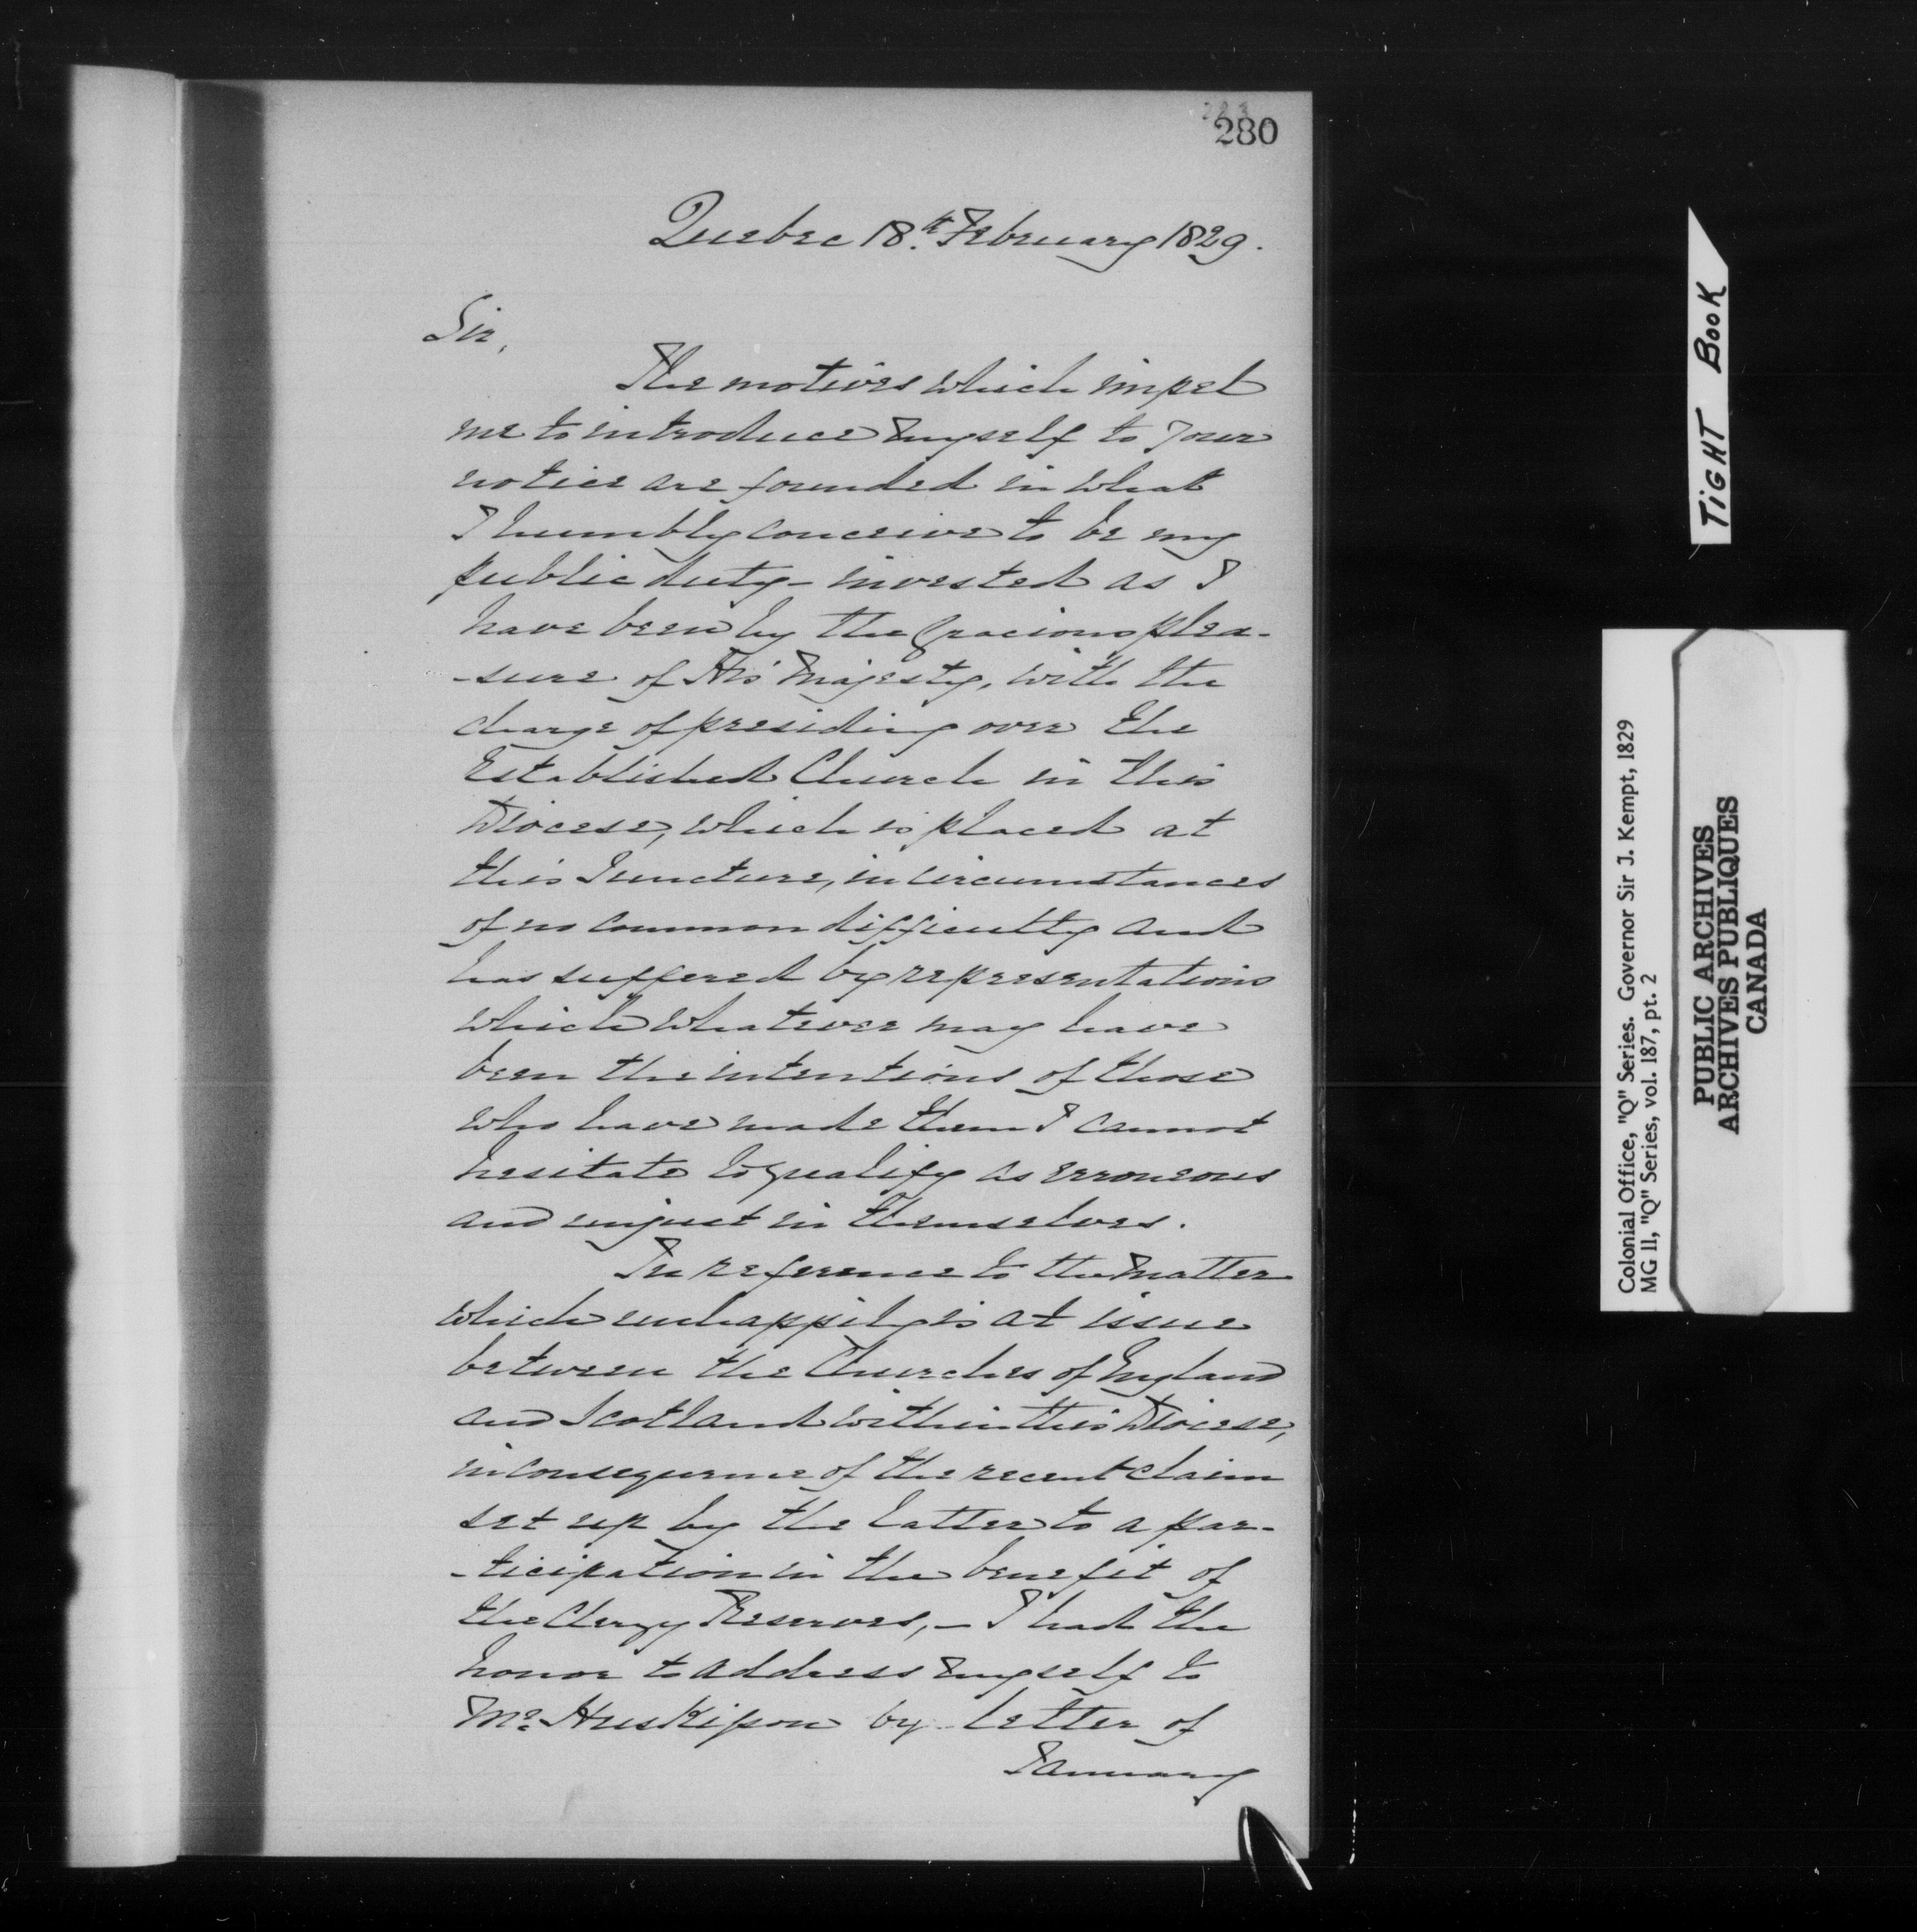 280
Quebec 18.th February 1829.
Sir,
The motives which impel
me to introduce myself to your
notice are founded in what
I humbly conceive to be my
public duty - invested as I
have been by the gracious plea-
-sure of His Majesty, with the
charge of presiding over the
Established Church in this
Diocese, which is placed at
this Juncture, in circumstances
of no common difficulty and
has suffered by representations
which whatever may have
been the intentions of those
who have made them I cannot
hesitate to qualify as erroneous
and unjust in themselves.
In reference to the matter
which unhappily is at issue
between the Churches of England
and Scotland within this Diocese,
in consequence of the recent claim
set up by the latter to a par-
-ticipation in the benefit of
the Clergy Reserves, - I had the
honor to address myself to
Mr. Huskisson by letter of
January
TIGHT BOOK
Colonial Office, "Q" Series. Governor Sir J. Kempt, 1829
MG 11, "Q" Series, vol. 187, pt. 2
PUBLIC ARCHIVES
ARCHIVES PUBLIQUES
CANADA